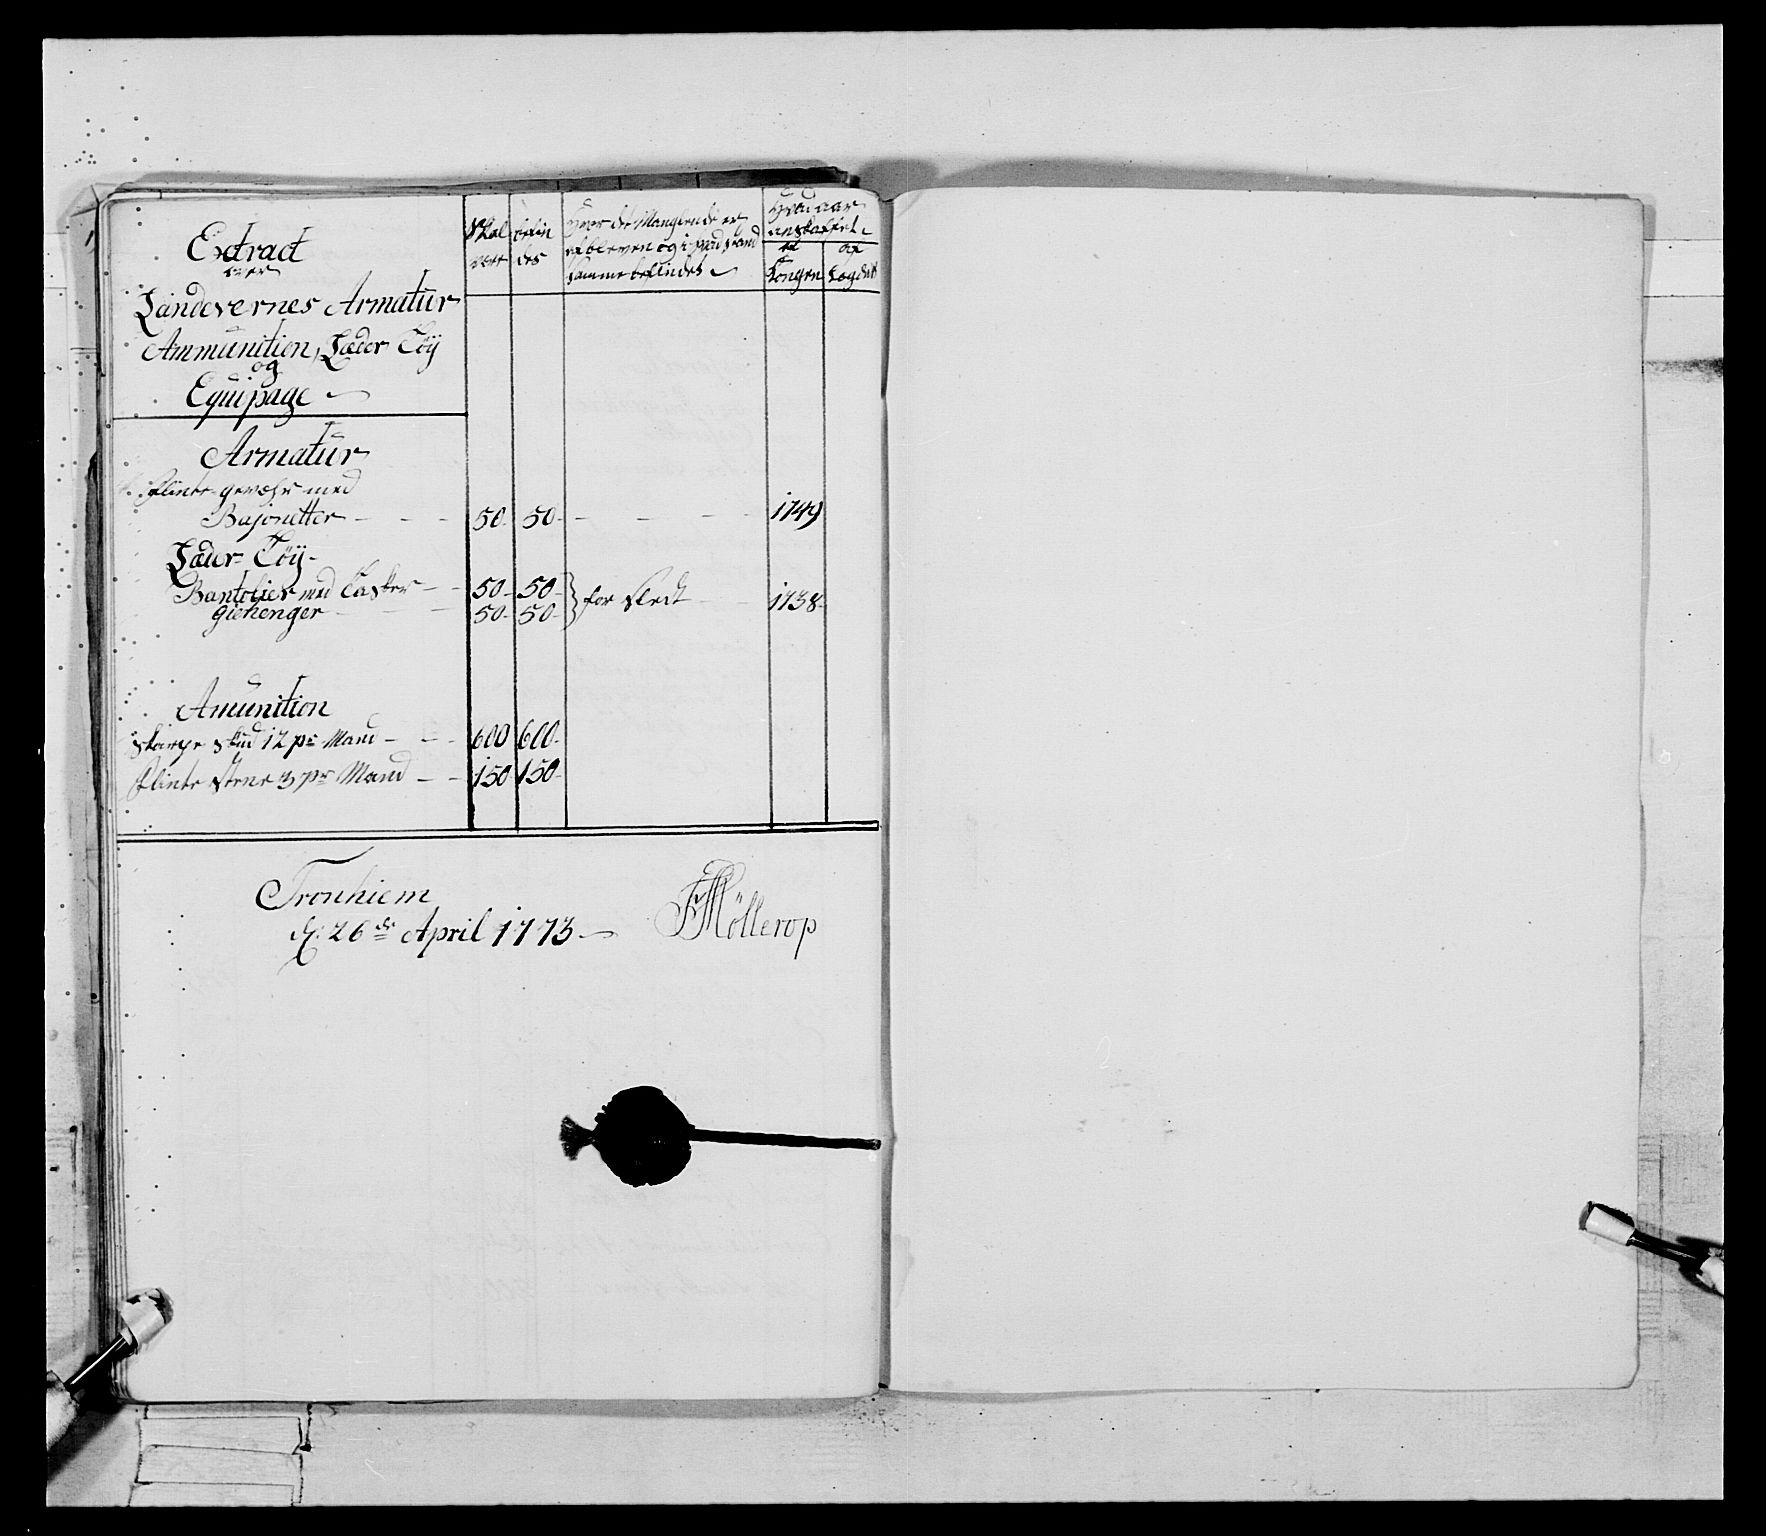 Extract
over
Landevernes Armatur
Ammunition, Læder Töÿ
og
Equipage
Skal være
befindes
Hvor det Manglende er
afbleven og i hvad stand
samme befindes
Hvad aar
anskaffet
af Kongen
af Legdet
Armatur
Flinte-gevæhr med
Bajonetter - - - 50. 50. - - - 1749
Læder-Töÿ-
Bantolier med Tasker - - 50. 50. } for sledt - - 1738.
giehenger - - - 50. 50.
Amunition
Skarpe skud 12 pr Mand - - - 600 600.
Flinte steene 3 pr Mand - - 150 150.
Tronhiem
d: 26de April 1773
Möllerop